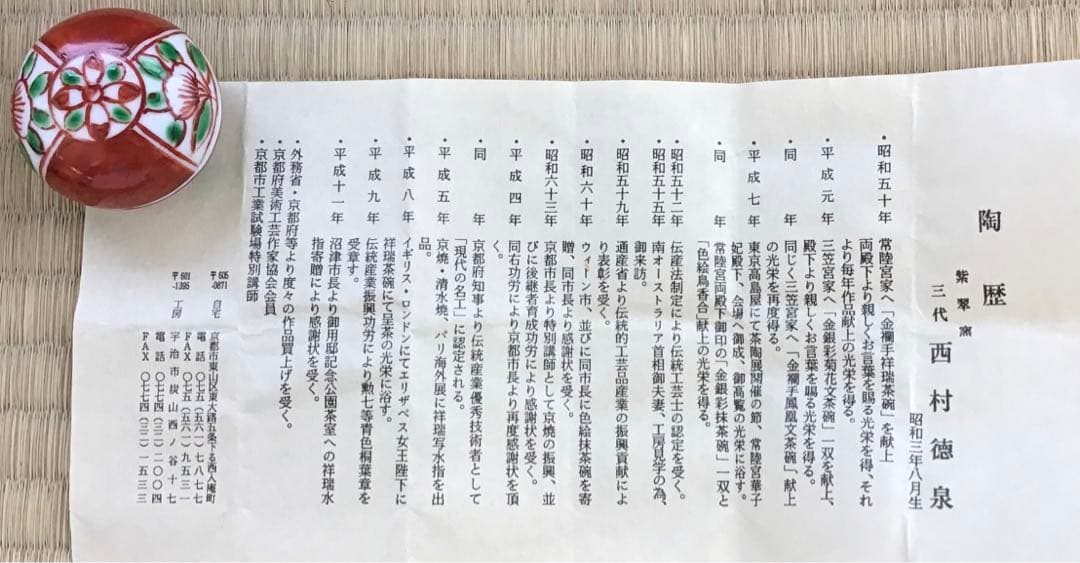 陶歴
紫翠窯
三代 西村德泉
昭和三年八月生
・昭和五十年 常陸宮家へ「金襴手祥瑞茶碗」を献上
両殿下より親しくお言葉を賜る光栄を得、それ
より毎年作品献上の光栄を得る。
・平成元年 三笠宮家へ「金銀彩菊花文茶碗」一双を献上、
殿下より親しくお言葉を賜る光栄を得る。
・同年 同じく三笠宮家へ「金襴手鳳凰文茶碗」献上
の光栄を再度得る。
・平成七年 東京高島屋にて茶陶展開催の節、常陸宮華子
妃殿下、会場へ御成、御高覧の光栄に浴す。
・同年 常陸宮両殿下御印の「金銀彩抹茶碗」一双と
「色絵鳥香合」献上の光栄を得る。
・昭和五十二年 伝産法制定により伝統工芸士の認定を受く。
・昭和五十五年 南オーストラリア首相御夫妻、工房見学の為、
御来訪。
・昭和五十九年 通産省より伝統的工芸品産業の振興貢献によ
り表彰を受く。
・昭和六十年 ウィーン市、並びに同市長に色絵抹茶碗を寄
贈、同市長より感謝状を受く。
・昭和六十三年 京都市長より特別講師として京焼の振興、並
びに後継者育成功労により感謝状を受く。
・平成四年 同右功労により京都市長より再度感謝状を頂
く。
・同年 京都府知事より伝統産業優秀技術者として
「現代の名工」に認定される。
・平成五年 京焼・清水焼、パリ海外展に祥瑞写水指を出
品。
・平成八年 イギリス・ロンドンにてエリザベス女王陛下に
祥瑞茶碗にて呈茶の光栄に浴す。
・平成九年 伝統産業振興功労により勲七等青色桐葉章を
受章す。
・平成十一年 沼津市長より御用邸記念公園茶室への祥瑞水
指寄贈により感謝状を受く。
・外務省・京都府等より度々の作品買上げを受く。
・京都府美術工芸作家協会会員
・京都市工業試験場特別講師
〒605-0871 自宅 京都市東山区東大路五条下る西入庵町
電話 〇七五(五六一)七八七七
FAX 〇七五(五六一)九五三一
〒601-1395 工房 宇治市炭山西ノ谷十七
電話 〇七七四(三二)二〇〇四
FAX 〇七七四(三二)一五三三